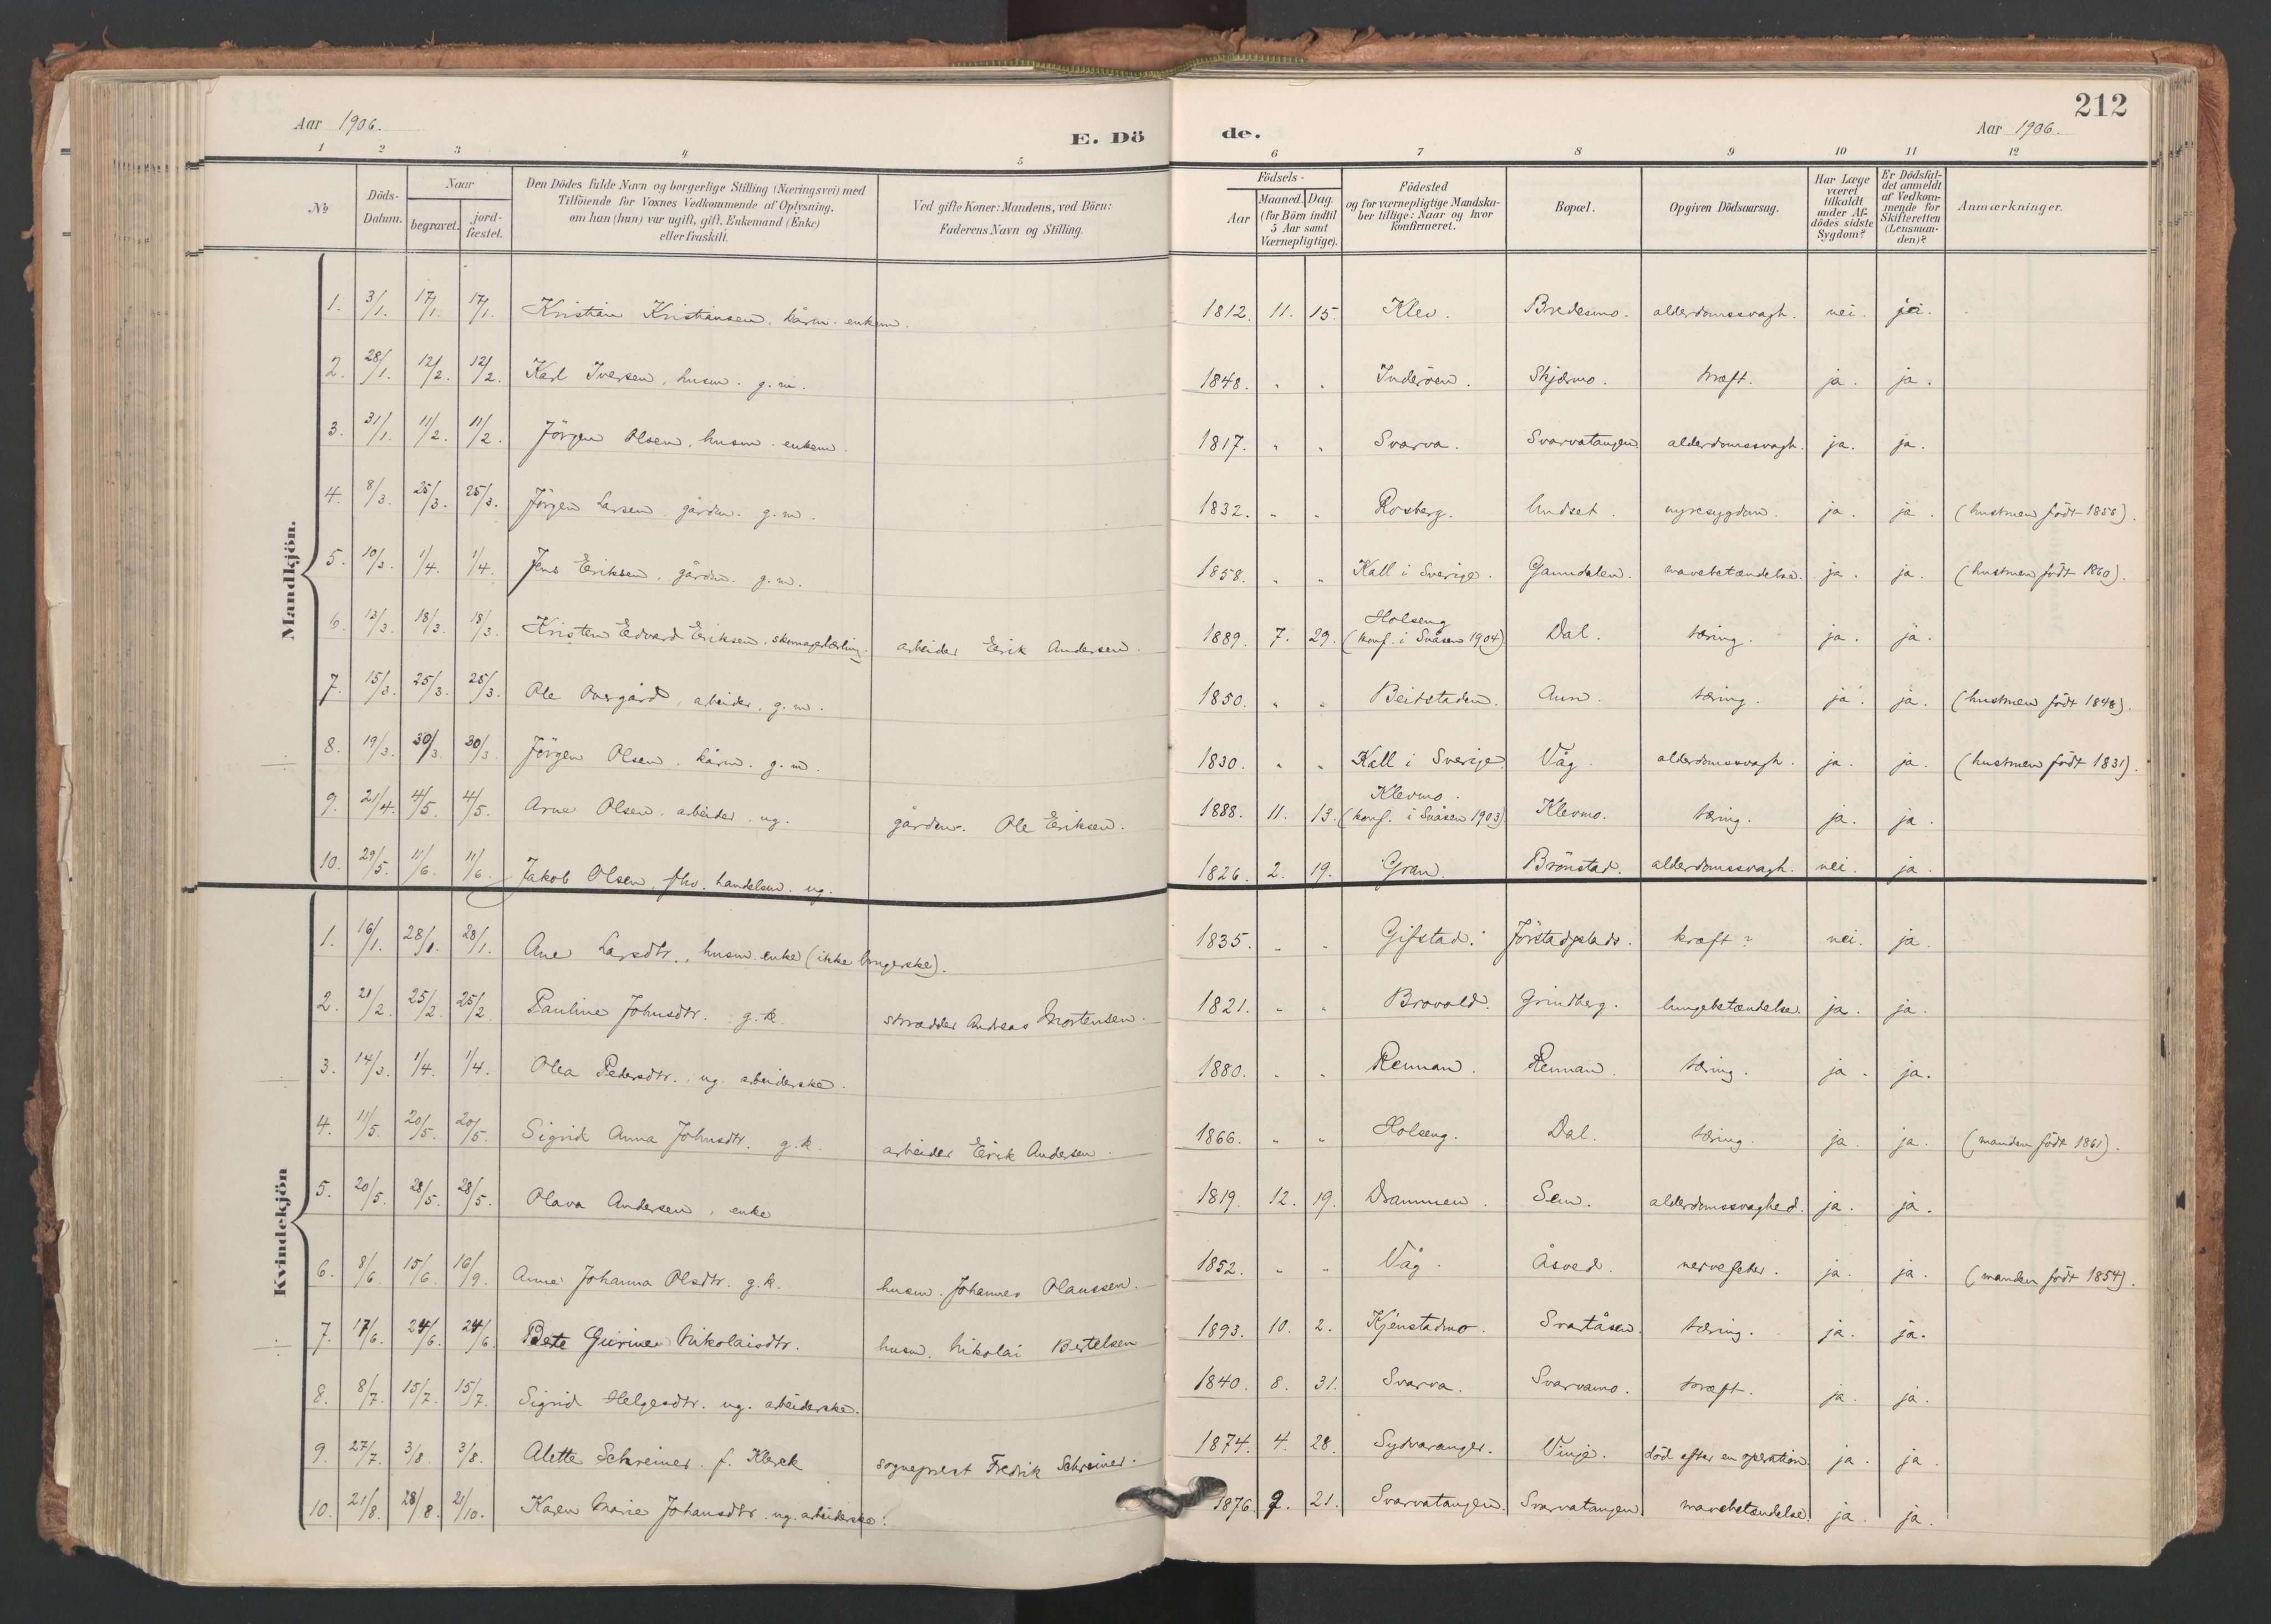 212
Aar 1906.
E. Dö
de.
Aar 1906.
1 2 3 4 5 6 7 8 9 10 11 12
№
Döds-Datum.
Naar
begravet.
jord-fæstet.
Den Dödes fulde Navn og borgerlige Stilling (Næringsvei) med
Tilföiende for Voxnes Vedkommende af Oplysning,
om han (hun) var ugift, gift, Enkemand (Enke)
eller fraskilt.
Ved gifte Koner: Mandens, ved Börn:
Faderens Navn og Stilling.
Födsels-
Aar
Maaned. Dag.
(for Börn indtil
5 Aar samt
Værnepligtige).
Födested
og for værnepligtige Mandska-
ber tillige: Naar og hvor
konfirmeret.
Bopæl.
Opgiven Dödsaarsag.
Har Læge
været
tilkaldt
under Af-
dödes sidste
Sygdom?
Er Dödsfal-
det anmeldt
af Vedkom-
mende for
Skifteretten
(Lensman-
den)?
Anmærkninger.
Mandkjön.
1. 3/1. 17/1. 17/1. Kristian Kristiansen, kårm. enkem. 1812. 11. 15. Klev. Bredesmo. alderdomssvagh. nei. ja.
2. 28/1. 12/2. 12/2. Karl Iversen, husm. g.m. 1848. " " Inderöen. Skjærmo. kræft. ja. ja.
3. 31/1. 11/2. 11/2. Jörgen Olsen, husm. enkem. 1817. " " Svarva. Svarvatangen. alderdomssvagh. ja. ja.
4. 8/3. 25/3. 25/3. Jörgen Larsen, gårdm. g.m. 1832. " " Rosberg. nyresygdom. ja. ja. (hustruen födt 1856).
5. 10/3. 1/4. 1/4. Jens Eriksen, gårdm. g.m. 1858. " " Kall i Sverige. Gaundalen. mavebetændelse. ja. ja. (hustruen födt 1860).
6. 13/3. 18/3. 18/3. Kristen Edvard Eriksen, skomagerlærling. arbeider Erik Andersen. 1889. 7. 29. Holseng (konf. i Snåsen 1904) Dal. tæring. ja. ja.
7. 15/3. 25/3. 25/3. Ole Overgård, arbeider, g.m. 1850. " " Beitstaden. Aun. tæring. ja. ja. (hustruen födt 1848).
8. 19/3. 30/3. 30/3. Jörgen Olsen, kårm. g.m. 1830. " " Kall i Sverige. Våg. alderdomssvagh. ja. ja. (hustruen födt 1831).
9. 21/4. 4/5. 4/5. Arne Olsen, arbeider, ug. gårdm. Ole Eriksen. 1888. 11. 13. Klevmo. (konf. i Snåsen 1903) Klevmo. tæring. ja. ja.
10. 29/5. 11/6. 11/6. Jakob Olsen, fhv. handelsm. ug. 1826. 2. 19. Gran. Brönstad. alderdomssvagh. nei. ja.
Kvindekjön
1. 16/1. 28/1. 28/1. Ane Larsdtr., husm. enke (ikke brugerske). 1835. " " Gifstad. Jörstadplads. kræft? nei. ja.
2. 21/2. 25/2. 25/2. Pauline Johnsdtr. g.k. skrædder Andreas Mortensen. 1821. " " Brovold. Grindberg. lungebetændelse. ja. ja.
3. 14/3. 1/4. 1/4. Olea Pedersdtr., ug. arbeiderske. 1880. " " Rennan. Rennan. tæring. ja. ja.
4. 11/5. 20/5. 20/5. Sigrid Anna Johnsdtr. g.k. arbeider Erik Andersen. 1866. " " Holseng. Dal. tæring. ja. ja. (manden födt 1861).
5. 20/5. 28/5. 28/5. Olava Andersen, enke 1819. 12. 19. Drammen. Sem. alderdomssvaghed. ja. ja.
6. 8/6. 15/6. 16/9. Anne Johanna Olsdtr. g.k. husm. Johannes Olaussen. 1852. " " Våg. Åsved. nervefeber. ja. ja. (manden födt 1854).
7. 17/6. 24/6. 24/6. Berte Gurine Nikolaisdtr. husm. Nikolai Bertelsen 1893. 10. 2. Kjenstadmo. Svartåsen. tæring. ja. ja.
8. 8/7. 15/7. 15/7. Sigrid Helgesdtr. ug. arbeiderske. 1840. 8. 31. Svarva. Svarvamo. kræft. ja. ja.
9. 27/7. 3/8. 3/8. Alette Schreiner f. Klerck sogneprest Fredrik Schreiner. 1874. 4. 28. Sydvaranger. Vinje. död efter en operation. ja. ja.
10. 21/8. 28/8. 21/10. Karen Marie Johansdtr. ug. arbeiderske. 1876. 9. 21. Svarvatangen. Svarvatangen mavebetændelse. ja. ja.